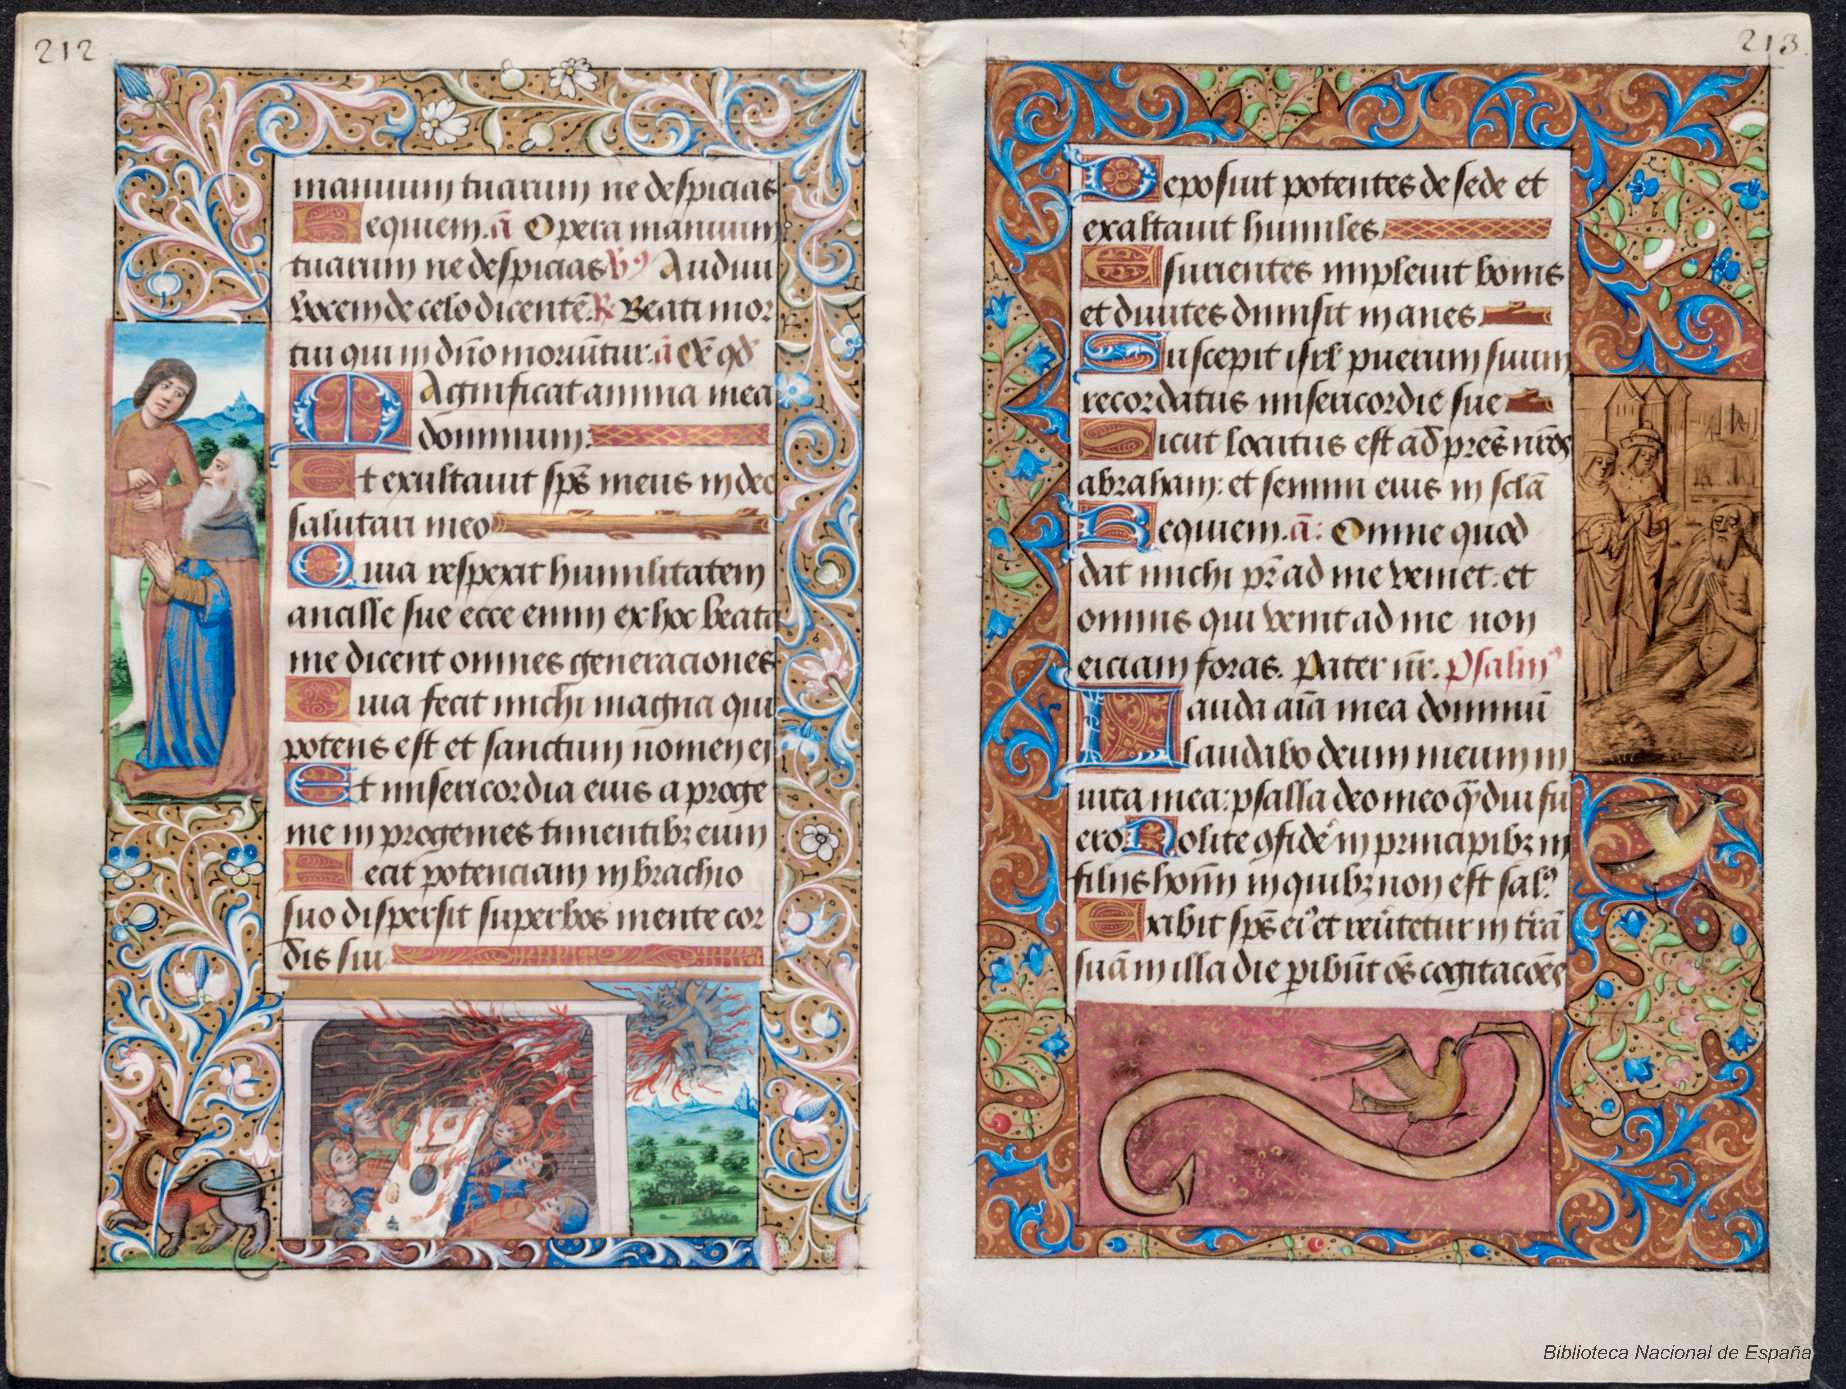 212
manuum tuarum ne despicias
Requiem. ā Opera manuum
tuarum ne despicias ℣ Audiui
vocem de celo dicentē. ℟ Beati mor
tui qui in dño moriūtur. ā
Magnificat anima mea
dominum:
Et exultauit sps̄ meus in deo
salutari meo
Quia respexit humilitatem
ancille sue ecce enim ex hoc beatā
me dicent omnes generaciones
Quia fecit michi magna qui
potens est et sanctum nomen ei
Et misericordia eius a proge
nie in progenies timentibꝫ eum
Fecit potenciam in brachio
suo dispersit superbos mente cor
dis sui
213
Deposuit potentes de sede et
exaltauit humiles
Esurientes impleuit bonis
et diuites dimisit inanes
Suscepit isrl puerum suum
recordatus misericordie sue
Sicut locutus est ad pr̄es nr̄os
abraham: et semini eius in sc̄lā
Requiem. ā: Omne quod
dat michi pr̄ ad me veniet: et
omnis qui venit ad me non
eiciam foras. Pater nr̄. Psalmꝰ
Lauda aīa mea dominū
laudabo deum meum in
uita mea: psallā deo meo qͣdiu fu
ero Nolite ꝯfidē in principibꝫ in
filijs hoīm in quibꝫ non est salꝰ
Exibit sps̄ eiꝰ et reūtetur in tr̄ā
suā in illa die ꝑibūt oēs cogitacōēs
Biblioteca Nacional de España